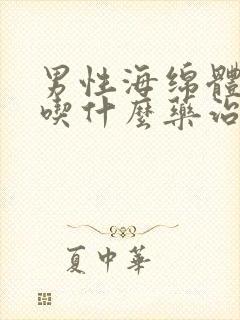 男性海绵體
喫什麼藥治
夏中華